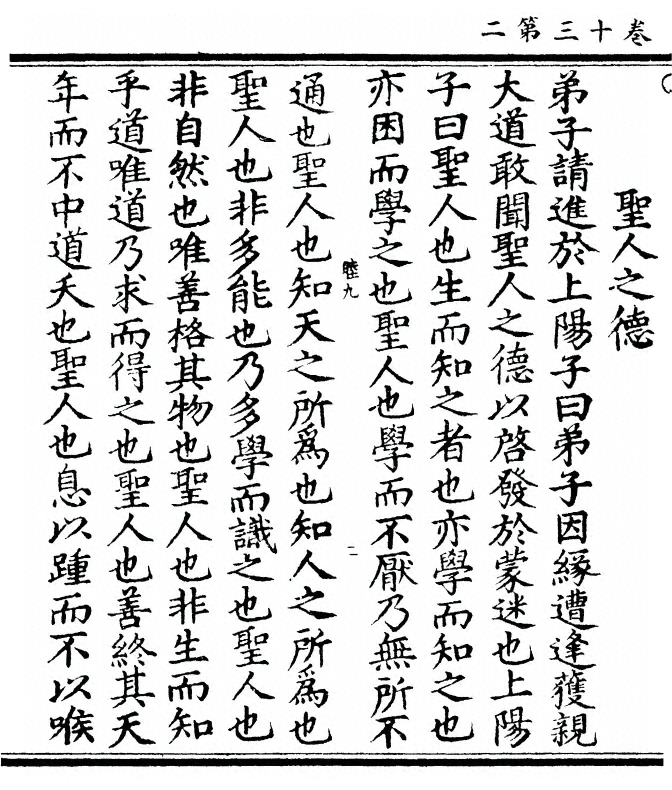 卷十三第二
聖人之德
弟子請進於上陽子曰弟子因緣遭逢獲親
大道敢聞聖人之德以啓發於蒙迷也上陽
子曰聖人也生而知之者也亦學而知之也
亦困而學之也聖人也學而不厭乃無所不
睦九
二
通也聖人也知天之所爲也知人之所爲也
聖人也非多能也乃多學而識之也聖人也
非自然也唯善格其物也聖人也非生而知
乎道唯道乃求而得之也聖人也善終其天
年而不中道夭也聖人也息以踵而不以喉